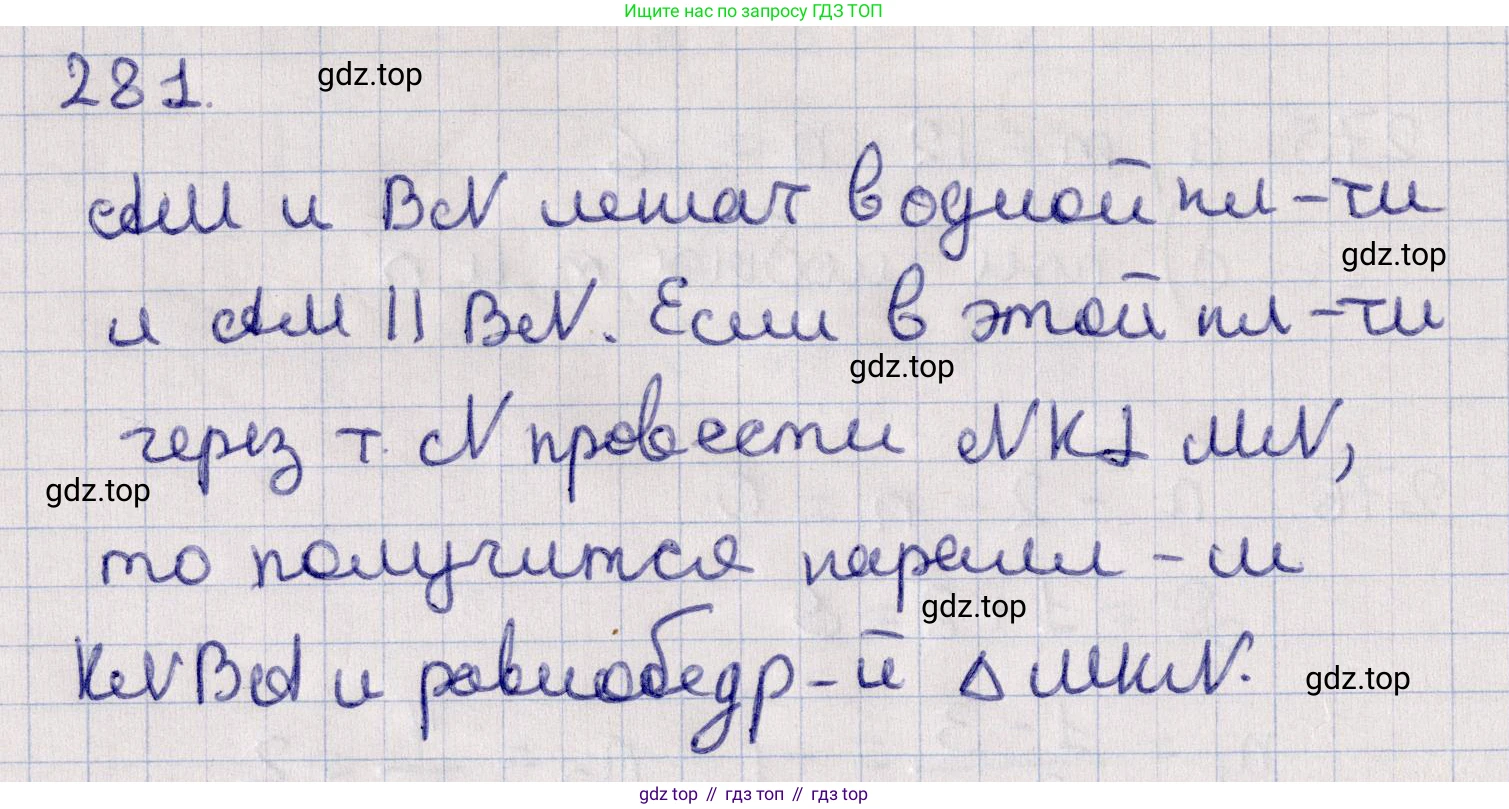 Ищите нас по запросу ГДЗ ТОП
281.
gdz.top
AM и BN лежат в одной пл-ти
gdz.top
и AM || BN. Если в этой пл-ти
gdz.top
через т. N провести NK ⊥ MN,
gdz.top
то получится паралл-м
gdz.top
KNBA и равнобедр-й Δ MKN.
gdz.top
gdz top // гдз топ // гдз top